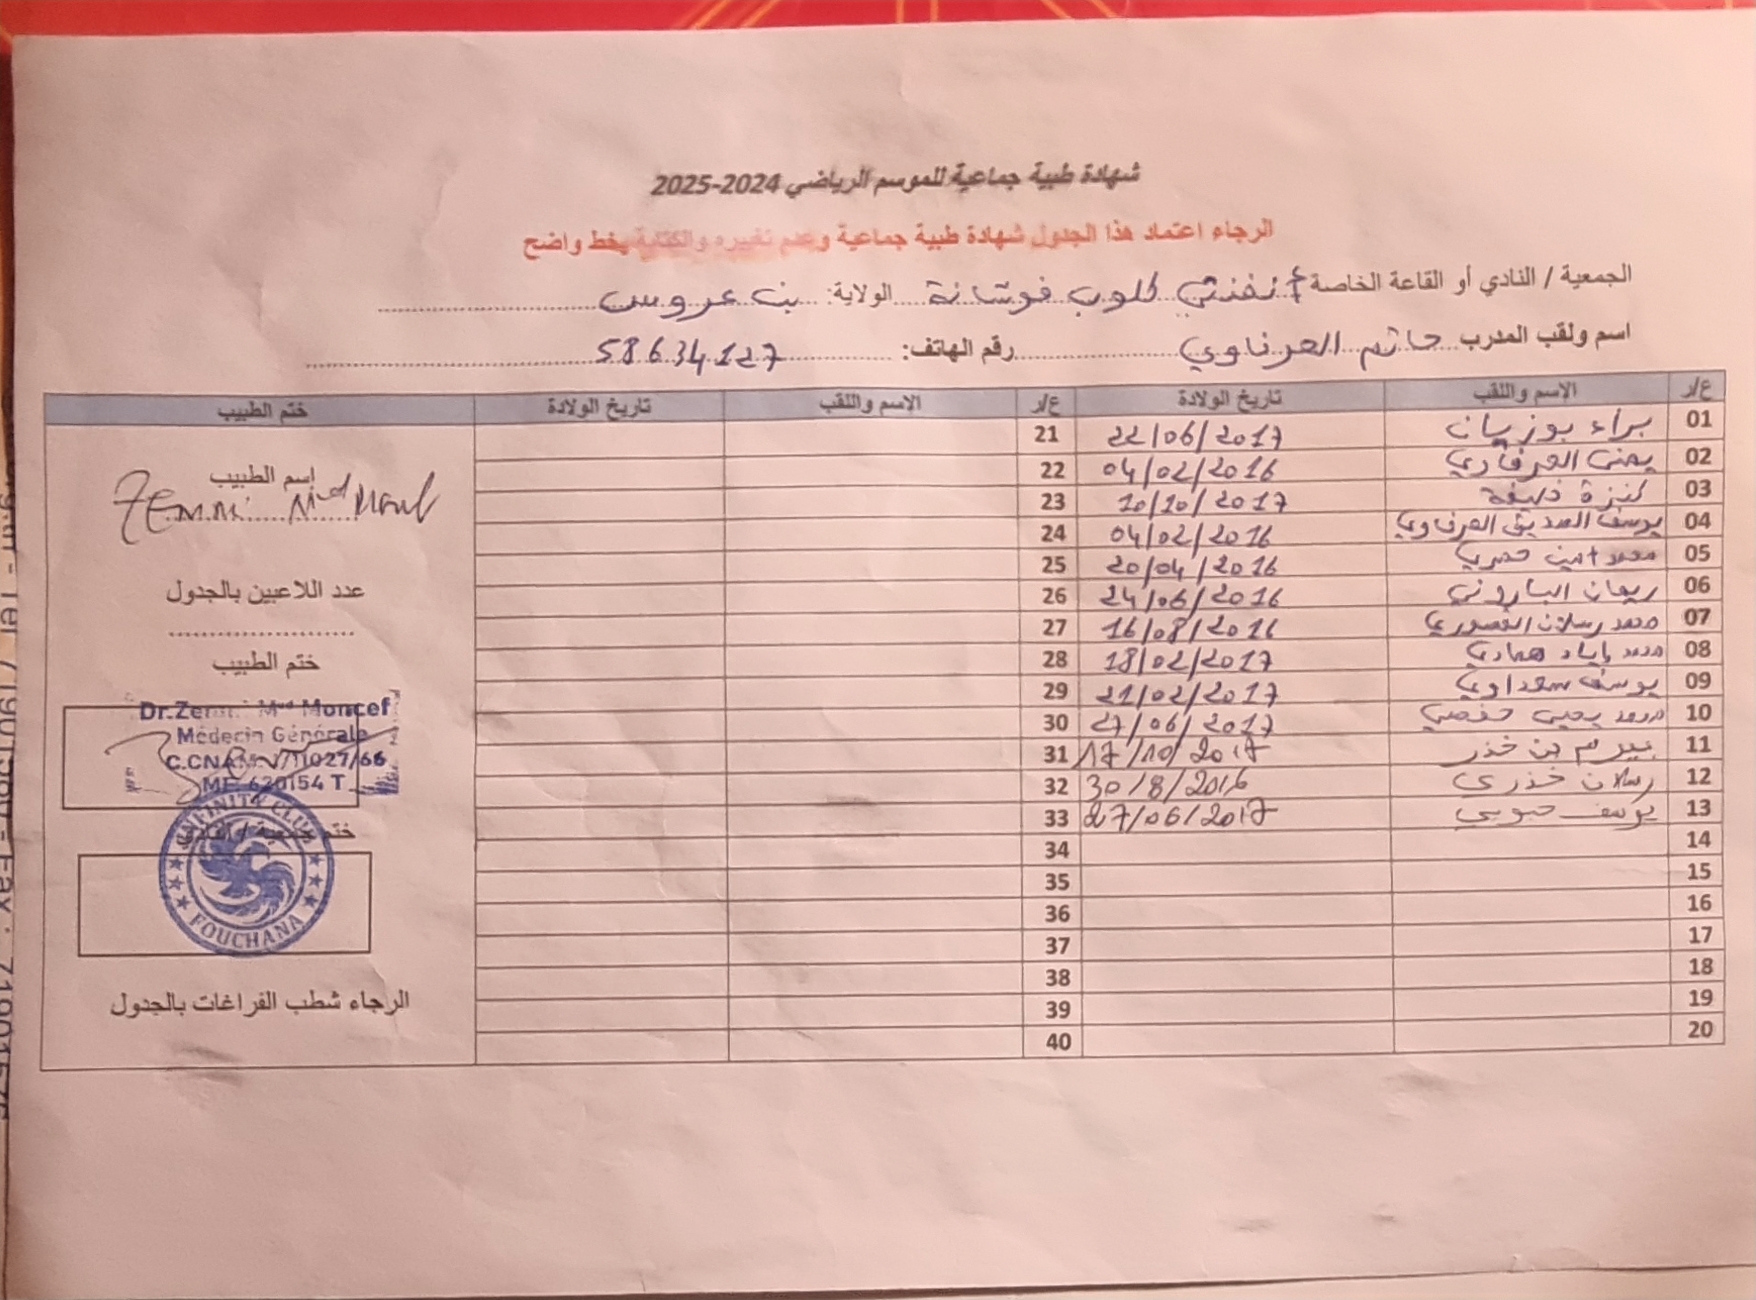 شهادة طبية جماعية للموسم الرياضي 2024-2025
الرجاء اعتماد هذا الجدول شهادة طبية جماعية وعدم تغييره والكتابة بخط واضح
الجمعية / النادي أو القاعة الخاصة أنفنتي كلوب فوشانة الولاية: بن عروس
اسم ولقب المدرب حاتم العرفاوي رقم الهاتف: 58634127
ع/ر الاسم واللقب تاريخ الولادة ع/ر الاسم واللقب تاريخ الولادة ختم الطبيب
01 براء بوزيان 22/06/2017 21
02 يمنى العرفاوي 04/02/2016 22
03 كنزة خليفة 10/10/2017 23
04 يوسف الصديق العرفاوي 04/02/2016 24
05 محمد امين 20/04/2016 25
06 ريهان الباروني 24/06/2016 26
07 محمد رسلان المنصوري 16/08/2016 27
08 محمد إياد همادي 18/02/2017 28
09 يوسف سعداوي 21/02/2017 29
10 محمد يحيى حفصي 27/06/2017 30
11 بيرم بن خذر 17/10/2017 31
12 رسلان خذري 30/8/2016 32
13 يوسف حبوبي 27/06/2017 33
14 34
15 35
16 36
17 37
18 38
19 39
20 40
إسم الطبيب
Zemni Med
عدد اللاعبين بالجدول
ختم الطبيب
Dr.Zemni Med Moncef
Médecin Générale
C.CNAM 1/11027/66
MF 620154 T
ختم جمعية /
INFINITY CLUB
FOUCHANA
الرجاء شطب الفراغات بالجدول